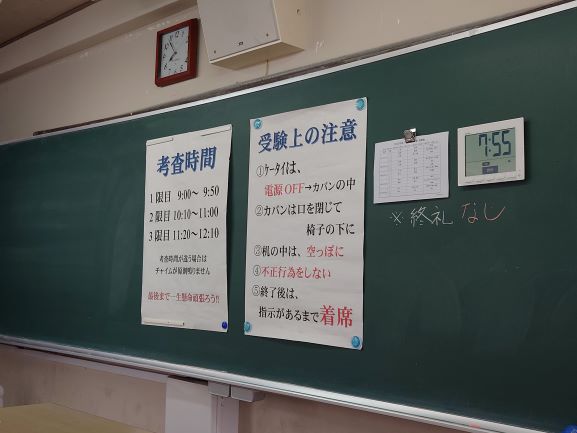 考査時間
1限目 9:00～ 9:50
2限目 10:10～11:00
3限目 11:20～12:10
考査時間が違う場合は
チャイムが原則鳴りません
最後まで一生懸命頑張ろう!!
受験上の注意
①ケータイは、
電源OFF→カバンの中
②カバンは口を閉じて
椅子の下に
③机の中は、空っぽに
④不正行為をしない
⑤終了後は、
指示があるまで着席
7:55
※終礼なし